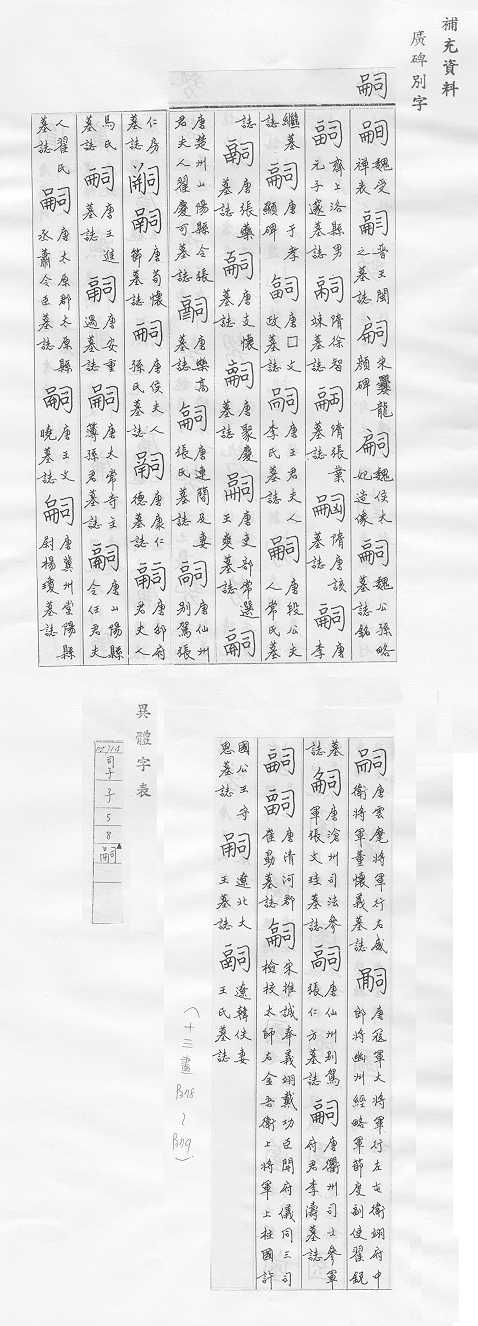 補充資料
廣碑別字
嗣
嗣 魏受禪表 嗣 晉王閩之墓誌 嗣 宋爨龍顏碑 嗣 魏侯太妃造像 嗣 魏公孫略墓誌銘
嗣 齊上洛縣男元子邃墓誌 嗣 隋徐智竦墓誌 嗣 隋張業墓誌 嗣 隋唐該墓誌 嗣 唐李
繼墓誌 嗣 唐于孝顯碑 嗣 唐□文政墓誌 嗣 唐王君夫人李氏墓誌 嗣 唐段公夫人常氏墓
誌 嗣 唐張藥墓誌 嗣 唐支懷墓誌 嗣 唐聚慶墓誌 嗣 唐吏部常選王奭墓誌 嗣
唐楚州山陽縣令張君夫人翟慶可墓誌 嗣 唐樂高墓誌 嗣 唐連簡及妻張氏墓誌 嗣 唐仙州別駕張
仁方墓誌 嗣 嗣 唐荀懷節墓誌 嗣 唐侯夫人孫氏墓誌 嗣 唐康仁德墓誌 嗣 唐邠府君夫人
馬氏墓誌 嗣 唐王進墓誌 嗣 唐安重遇墓誌 嗣 唐太常寺主簿孫君墓誌 嗣 唐山陽縣令任君夫
人翟氏墓誌 嗣 唐太原郡太原縣丞蕭令臣墓誌 嗣 唐王文曉墓誌 嗣 唐冀州堂陽縣尉楊瓊墓誌
嗣 唐雲麾將軍行右威衛將軍董懷義墓誌 嗣 唐冠軍大將軍行左屯衛翊府中郎將幽州經略軍節度副使翟銳
墓誌 嗣 唐滄州司法參軍張文珪墓誌 嗣 唐仙州別駕張仁方墓誌 嗣 唐衢州司士參軍府君李濤墓誌
嗣 嗣 唐清河郡崔勗墓誌 嗣 宋推誠奉義翊戴功臣開府儀同三司檢校太師右金吾衛上將軍上柱國許
國公王守恩墓誌 嗣 遼北大王墓誌 嗣 遼韓佚妻王氏墓誌
(十三畫 B78~B79)
異體字表
司
子
子
5
8
嗣